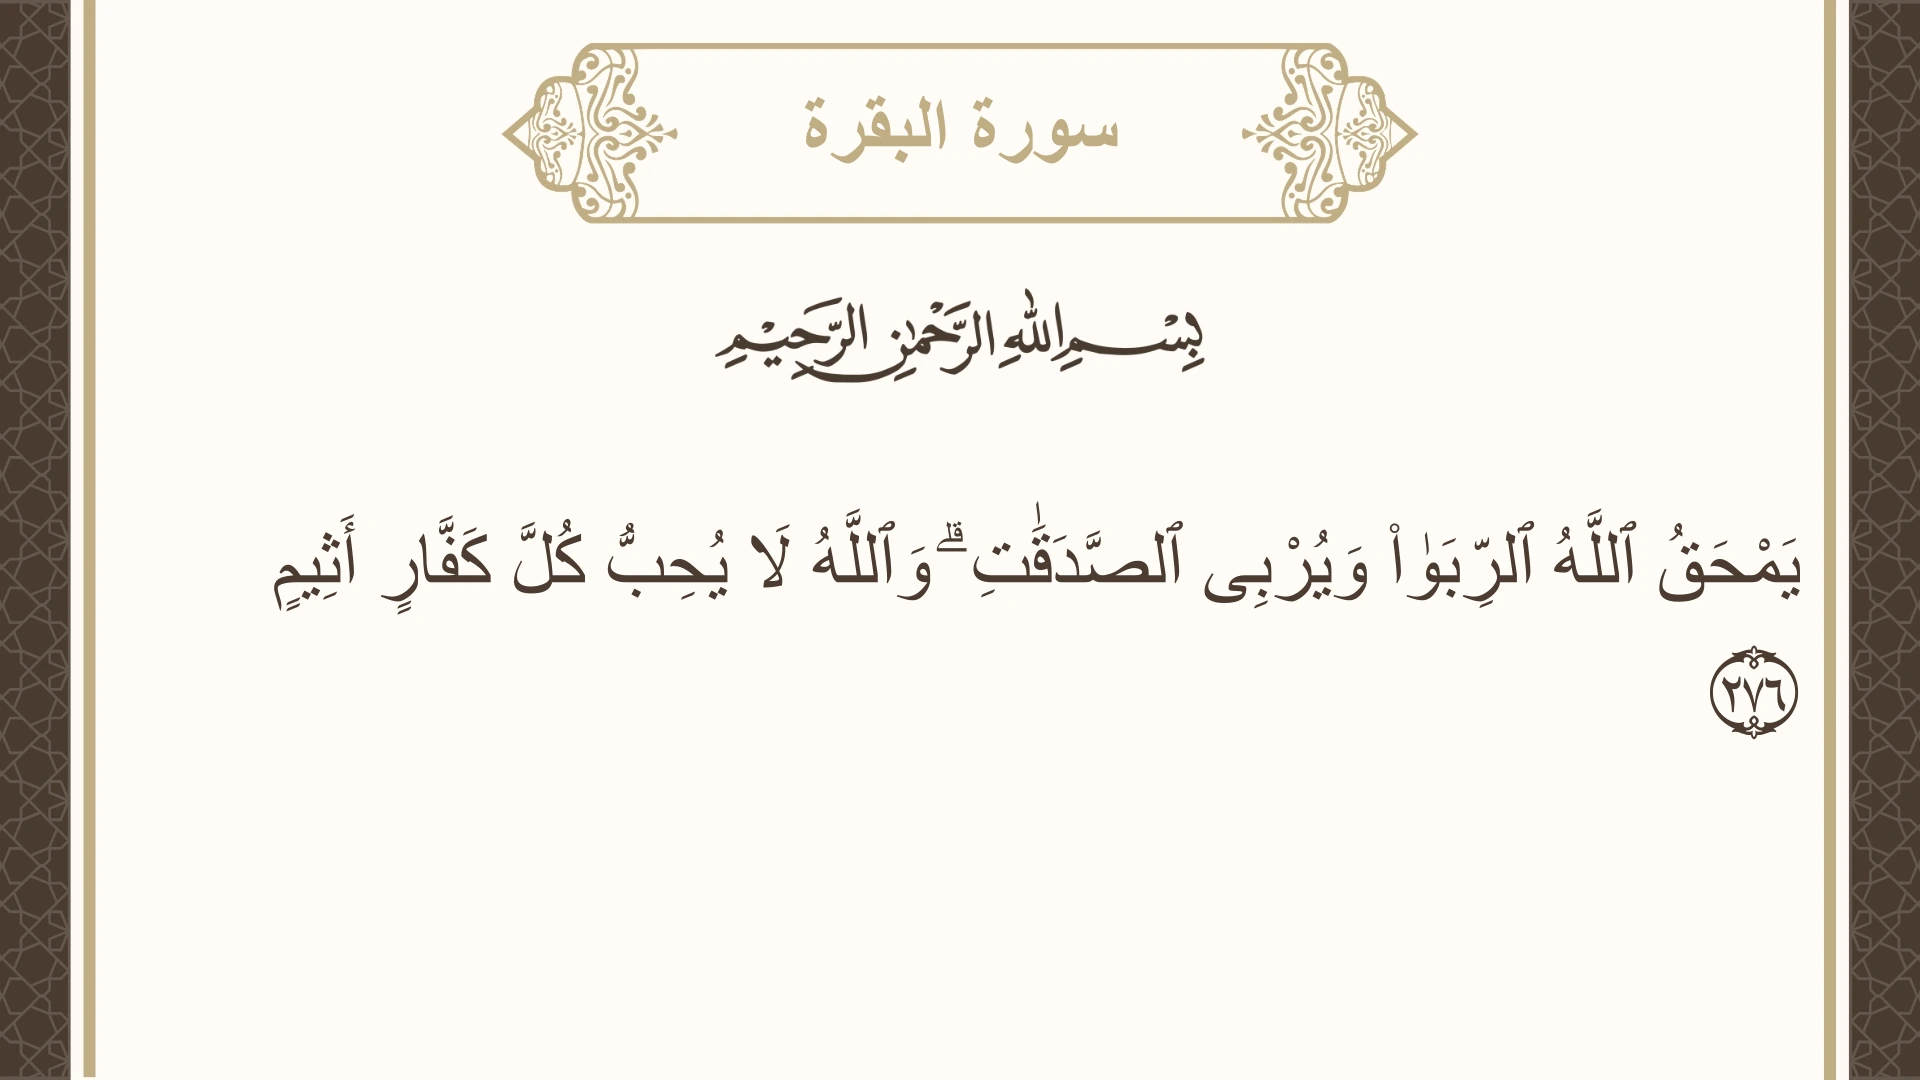 سورة البقرة
بِسْمِ اللهِ الرَّحْمٰنِ الرَّحِيْمِ
يَمْحَقُ ٱللَّهُ ٱلرِّبَوٰا۟ وَيُرْبِى ٱلصَّدَقَٰتِ ۗ وَٱللَّهُ لَا يُحِبُّ كُلَّ كَفَّارٍ أَثِيمٍ
٢٧٦